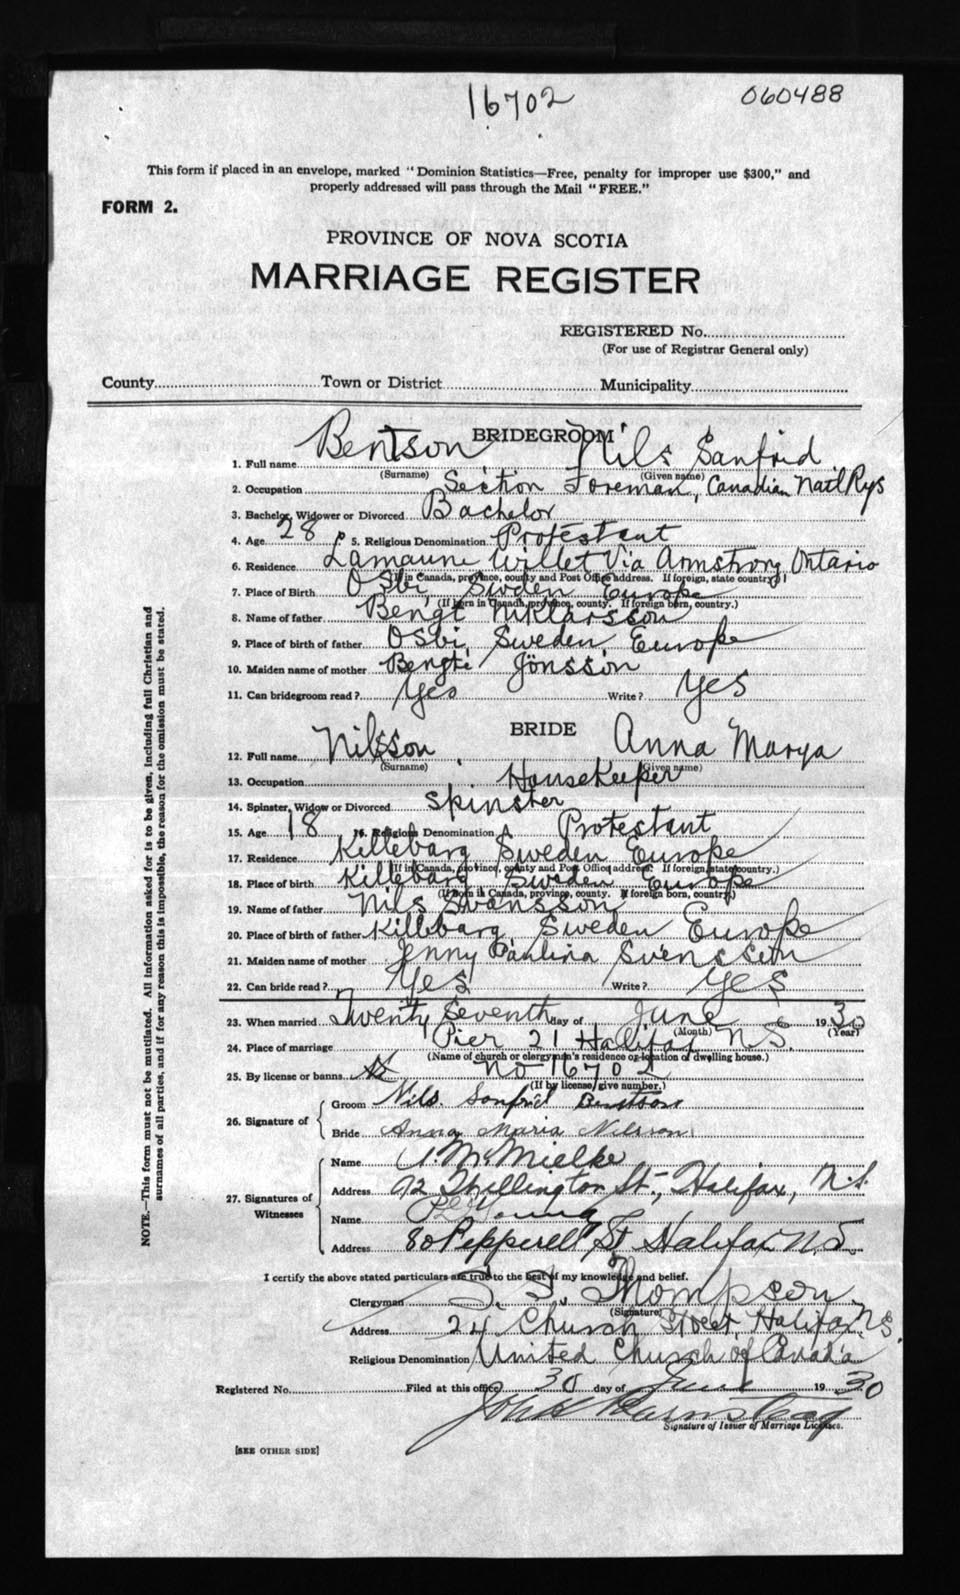 16702
060488
This form if placed in an envelope, marked "Dominion Statistics—Free, penalty for improper use $300," and
properly addressed will pass through the Mail "FREE."
FORM 2.
PROVINCE OF NOVA SCOTIA
MARRIAGE REGISTER
REGISTERED No.
(For use of Registrar General only)
County Town or District Municipality
BRIDEGROOM
1. Full name Bentson Nils Sanfrid
(Surname) (Given name)
2. Occupation Section Foreman, Canadian Natl Rys
3. Bachelor, Widower or Divorced Bachelor
4. Age 28 5. Religious Denomination Protestant
6. Residence Lamaune Willet Via Armstrong Ontario
(If in Canada, province, county and Post Office address. If foreign, state country.)
7. Place of Birth Osbi, Sweden Europe
(If born in Canada, province, county. If foreign born, country.)
8. Name of father Bengt Niklarsson
9. Place of birth of father Osbi, Sweden Europe
10. Maiden name of mother Bengte Jönsson
11. Can bridegroom read? Yes Write? Yes
BRIDE
12. Full name Nilsson Anna Marya
(Surname) (Given name)
13. Occupation Housekeeper
14. Spinster, Widow or Divorced Spinster
15. Age 18 16. Religious Denomination Protestant
17. Residence Killebarg Sweden Europe
(If in Canada, province, county and Post Office address. If foreign, state country.)
18. Place of birth Killebarg Sweden Europe
(If born in Canada, province, county. If foreign born, country.)
19. Name of father Nils Swensson
20. Place of birth of father Killebarg Sweden Europe
21. Maiden name of mother Jenny Paulina Svensson
22. Can bride read? Yes Write? Yes
23. When married Twenty Seventh day of June 1930
(Month) (Year)
24. Place of marriage Pier 21 Halifax N.S.
(Name of church or clergyman's residence or location of dwelling house.)
25. By license or banns No 16702
(If by license, give number.)
26. Signature of
Groom Nils. Sanfrid Bentson
Bride Anna Maria Nilsson
27. Signatures of Witnesses
Name Mielke
Address 92 St., Halifax, N.S.
Name Young
Address 80 Pepperell St Halifax N.S.
I certify the above stated particulars are true to the best of my knowledge and belief.
Clergyman Thompson
(Signature)
Address 24 Church Street, Halifax N.S.
Religious Denomination United Church of Canada
Registered No. Filed at this office 30 day of June 1930
John
Signature of Issuer of Marriage Licenses.
[SEE OTHER SIDE]
NOTE.—This form must not be mutilated. All information asked for is to be given, including full Christian and
surnames of all parties, and if for any reason this is impossible, the reason for the omission must be stated.